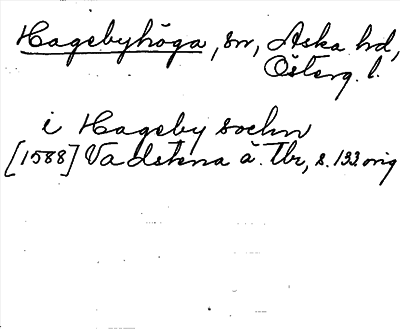 Hagebyhöga, sn, Aska hd,
Österg. l.
i Hageby sochn
[1588] Vadstena ä. Tbr, s. 122 orig